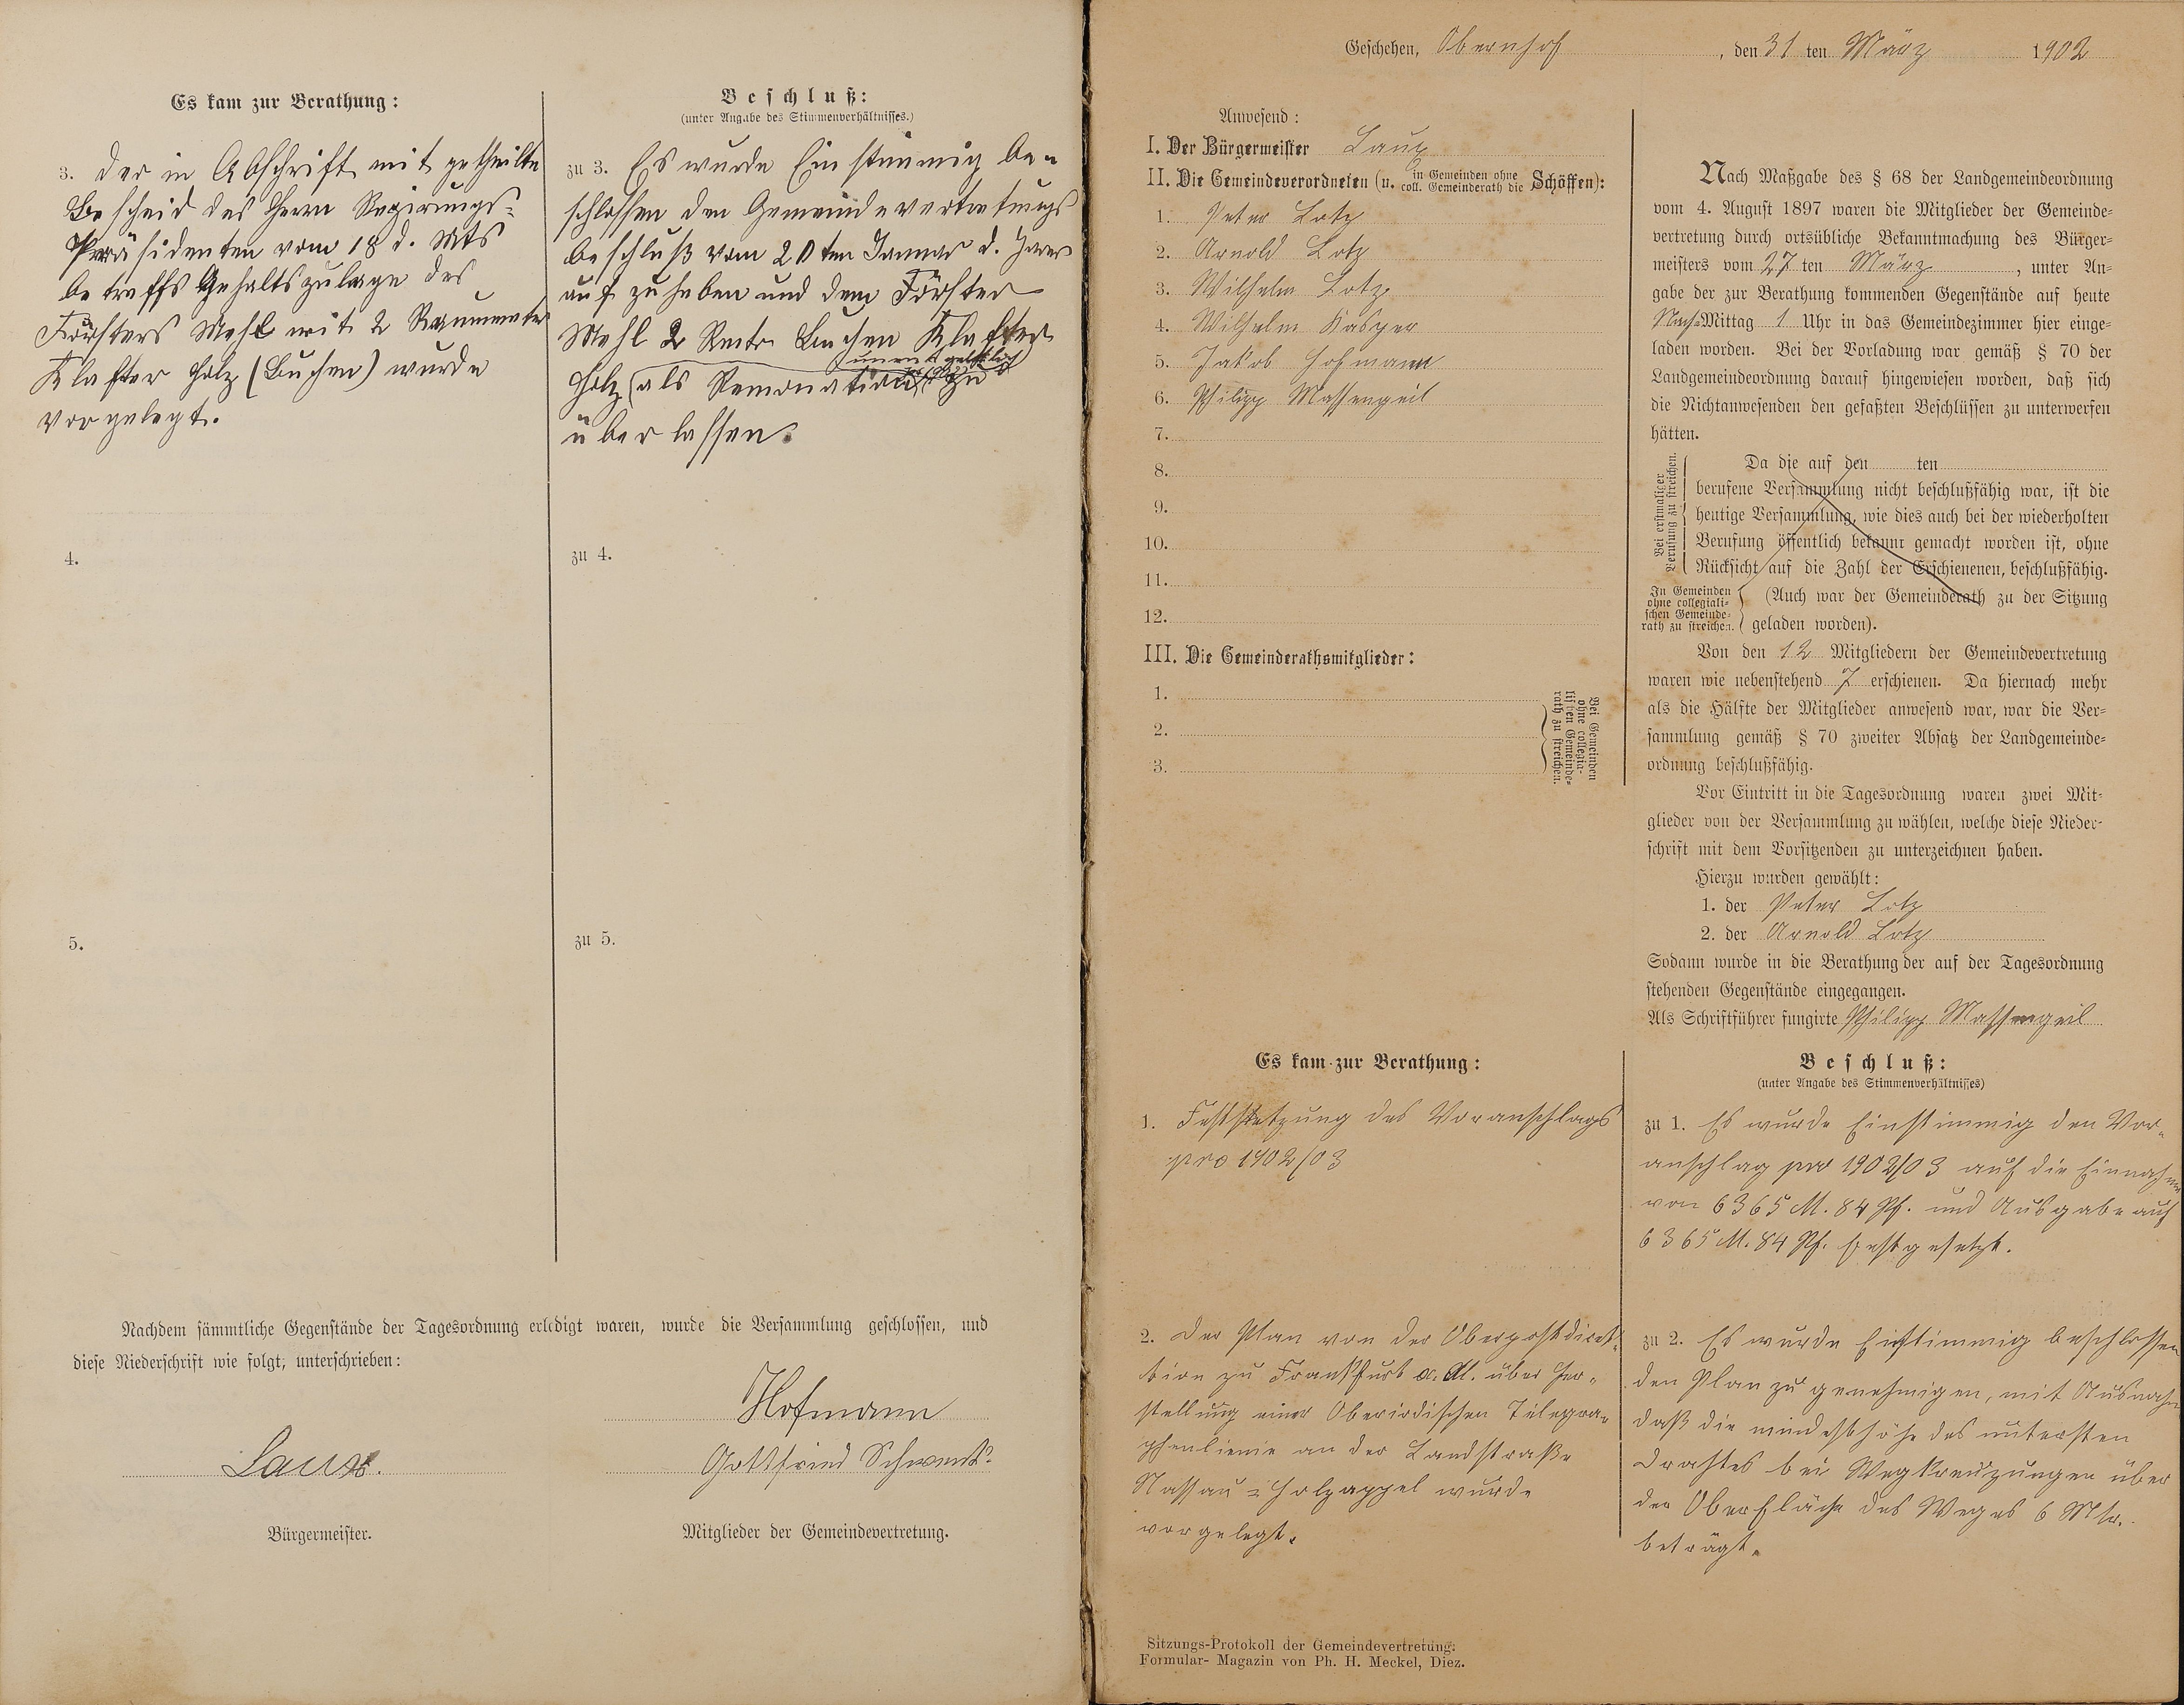 Es kam zur Berathung:
3. Der in Abschrift mit getheilte
Bescheid des Herrn Regirungs-
Präsidenten vom 18 d. Mts
betreffs Gehaltszulage des
Försters Mehl mit 2 Raummeter
Klafter Holz (Buchen) wurde
vorgelegt.
4.
5.
Beschluß:
(unter Angabe des Stimmenverhältnisses.)
zu 3. Es wurde Einstimmig be-
schlossen den Gemeindevertretungs
beschluß vom 20ten Januar d. Jares
auf zu heben und dem Förster
Mehl 2 Rmtr Buchen Klafter
unentgeltlich
Holz (als Remonation) zu
überlassen.
zu 4.
zu 5.
Nachdem sämmtliche Gegenstände der Tagesordnung erledigt waren, wurde die Versammlung geschlossen, und
diese Niederschrift wie folgt, unterschrieben:
Hofmann
Laux.
Gottfried Schwenk
Bürgermeister.
Mitglieder der Gemeindevertretung.
Geschehen, Obernhof, den 31 ten März 1902
Anwesend:
I. Der Bürgermeister Laux
II. Die Gemeindeverordneten (u. in Gemeinden ohne coll. Gemeinderath die Schöffen):
1. Peter Lotz
2. Arnold Lotz
3. Wilhelm Lotz
4. Wilhelm Kasper
5. Jakob Hofmann
6. Philipp Massengeil
7.
8.
9.
10.
11.
12.
III. Die Gemeinderathsmitglieder:
1.
2.
3.
Bei Gemeinden
ohne collegia-
lischen Gemeinde-
rath zu streichen.
Nach Maßgabe des § 68 der Landgemeindeordnung
vom 4. August 1897 waren die Mitglieder der Gemeinde-
vertretung durch ortsübliche Bekanntmachung des Bürger-
meisters vom 27 ten März, unter An-
gabe der zur Berathung kommenden Gegenstände auf heute
Nach-Mittag 1 Uhr in das Gemeindezimmer hier einge-
laden worden. Bei der Vorladung war gemäß § 70 der
Landgemeindeordnung darauf hingewiesen worden, daß sich
die Nichtanwesenden den gefaßten Beschlüssen zu unterwerfen
hätten.
Bei erstmaliger
Berufung zu streichen.
Da die auf den ten
berufene Versammlung nicht beschlußfähig war, ist die
heutige Versammlung, wie dies auch bei der wiederholten
Berufung öffentlich bekannt gemacht worden ist, ohne
Rücksicht auf die Zahl der Erschienenen, beschlußfähig.
In Gemeinden
ohne collegiali-
schen Gemeinde-
rath zu streichen.
(Auch war der Gemeinderath zu der Sitzung
geladen worden).
Von den 12 Mitgliedern der Gemeindevertretung
waren wie nebenstehend 7 erschienen. Da hiernach mehr
als die Hälfte der Mitglieder anwesend war, war die Ver-
sammlung gemäß § 70 zweiter Absatz der Landgemeinde-
ordnung beschlußfähig.
Vor Eintritt in die Tagesordnung waren zwei Mit-
glieder von der Versammlung zu wählen, welche diese Nieder-
schrift mit dem Vorsitzenden zu unterzeichnen haben.
Hierzu wurden gewählt:
1. der Peter Lotz
2. der Arnold Lotz
Sodann wurde in die Berathung der auf der Tagesordnung
stehenden Gegenstände eingegangen.
Als Schriftführer fungirte Philipp Massengeil
Es kam zur Berathung:
1. Festsetzung des Voranschlags
pro 1902/03
2. Der Plan von der Oberpostdirek-
tion zu Frankfurt a. M. über Her-
stellung einer Oberirdischen Telegra-
phenlienie an der Landstraße
Nassau-Holzappel wurde
vorgelegt.
Beschluß:
(unter Angabe des Stimmenverhältnisses)
zu 1. Es wurde Einstimmig den Vor-
anschlag pro 1902/03 auf die Einnahme
von 6365 M. 84 Pf. und Ausgabe auf
6365 M. 84 Pf. festgesetzt.
zu 2. Es wurde Einstimmig beschlossen
den Plan zu genehmigen, mit Ausnahm
daß die mindesthöhe des untersten
Drahtes bei Wegkreuzungen über
der Oberfläche des Weges 6 Mtr.
beträgt.
Sitzungs-Protokoll der Gemeindevertretung.
Formular-Magazin von Ph. H. Meckel, Diez.